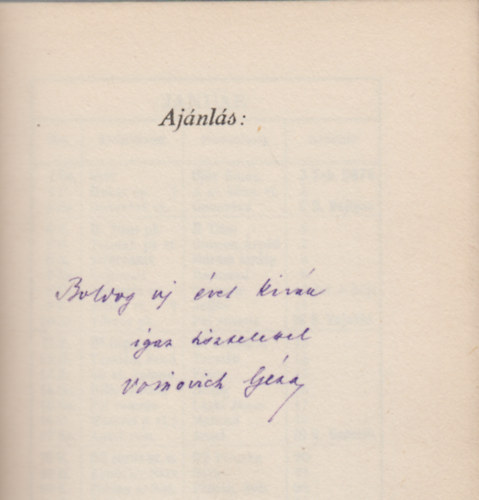 Ajánlás:
Boldog uj évet kiván
igaz tisztelettel
Voinovich Géza